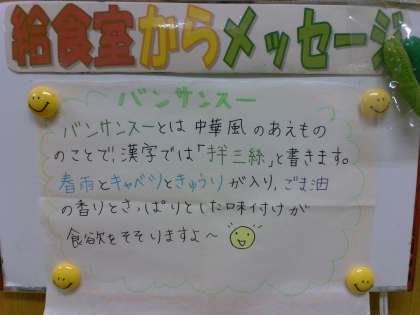 給食室からメッセージ
バンサンスー
バンサンスーとは中華風のあえもの
のことで、漢字では「拌三絲」と書きます。
春雨とキャベツときゅうりが入り、ごま油
の香りとさっぱりとした味付けが
食欲をそそりますよ～